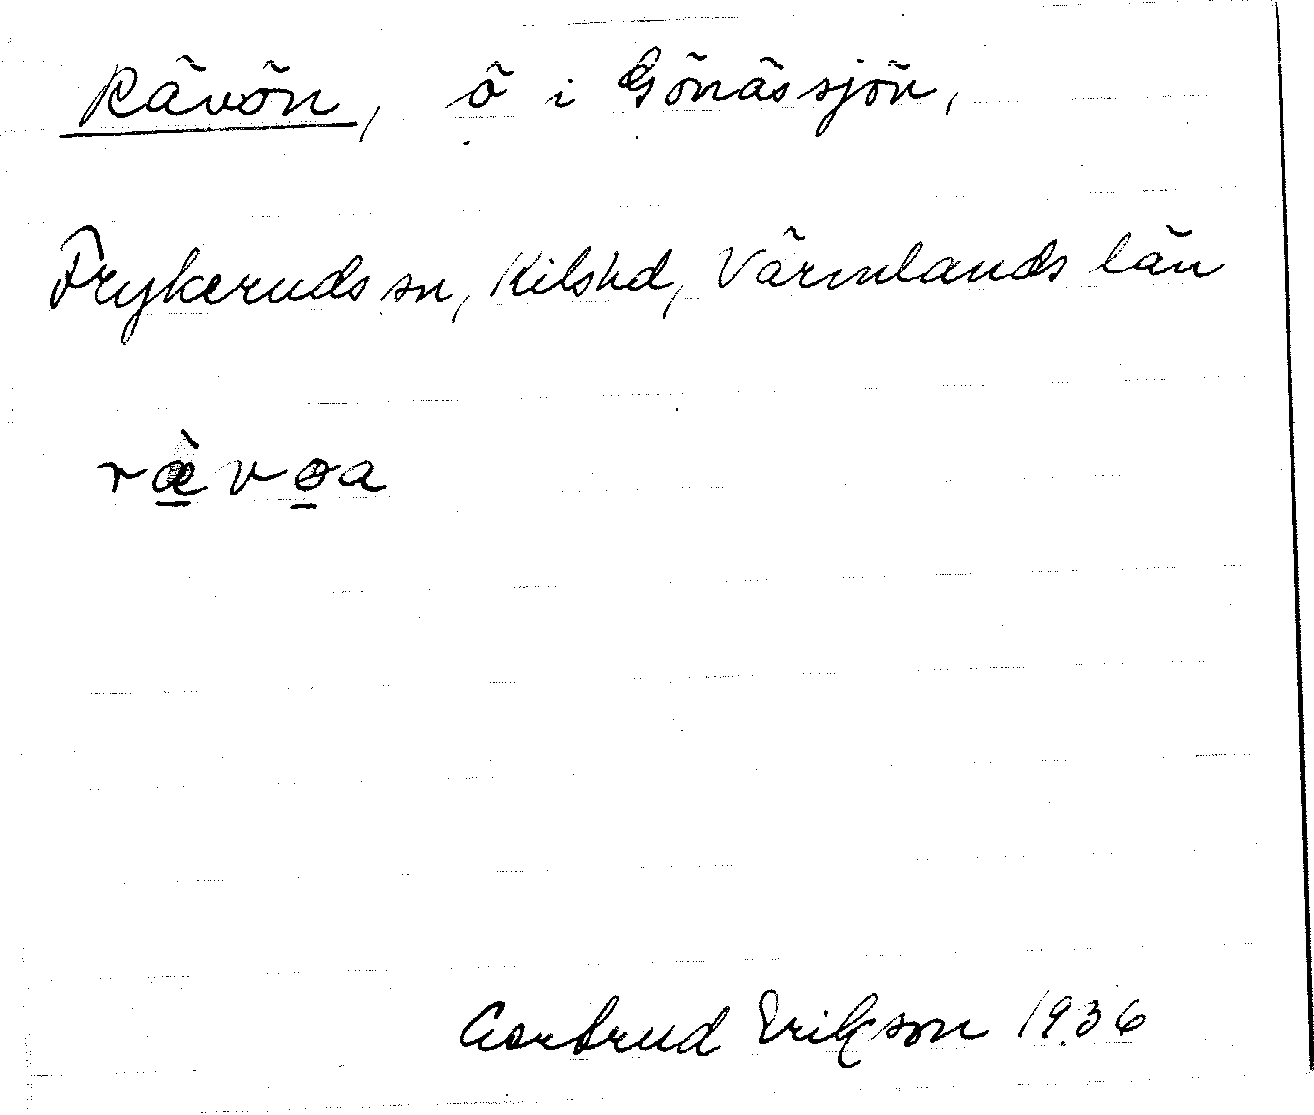 Rävön, ö i Gönässjön,
Frykeruds sn, Kils hd, Värmlands län
ræ̀vøa
Gertrud Erikson 1936